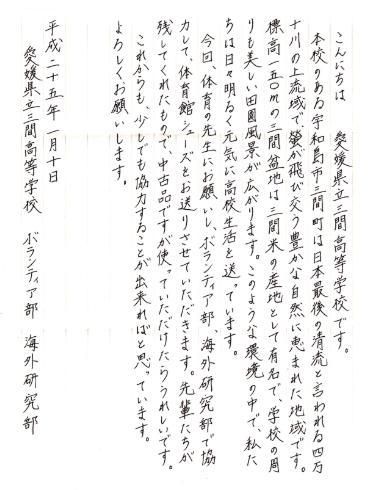 こんにちは　愛媛県立三間高等学校です。
本校のある宇和島市三間町は日本最後の清流と言われる四万
十川の上流域で、螢が飛び交う豊かな自然に恵まれた地域です。
標高一五〇mの三間盆地は三間米の産地として有名で、学校の周
りも美しい田園風景が広がります。このような環境の中で、私た
ちは日々明るく元気に高校生活を送っています。
今回、体育の先生にお願いし、ボランティア部、海外研究部で協
力して、体育館シューズをお送りさせていただきます。先輩たちが
残してくれたもので、中古品ですが使っていただけたらうれしいです。
これからも、少しでも協力することが出来ればと思っています。
よろしくお願いします。
平成二十五年一月十日
愛媛県立三間高等学校　ボランティア部　海外研究部